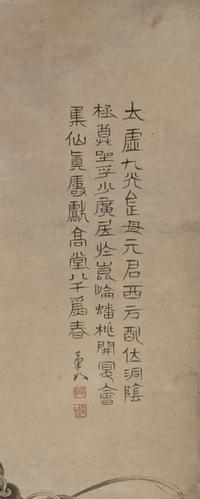 太虛九光龜母元君西方配位洞陰
極尊理乎少廣居於崑崘蟠桃開宴會
集仙真慶獻高堂八千爲春